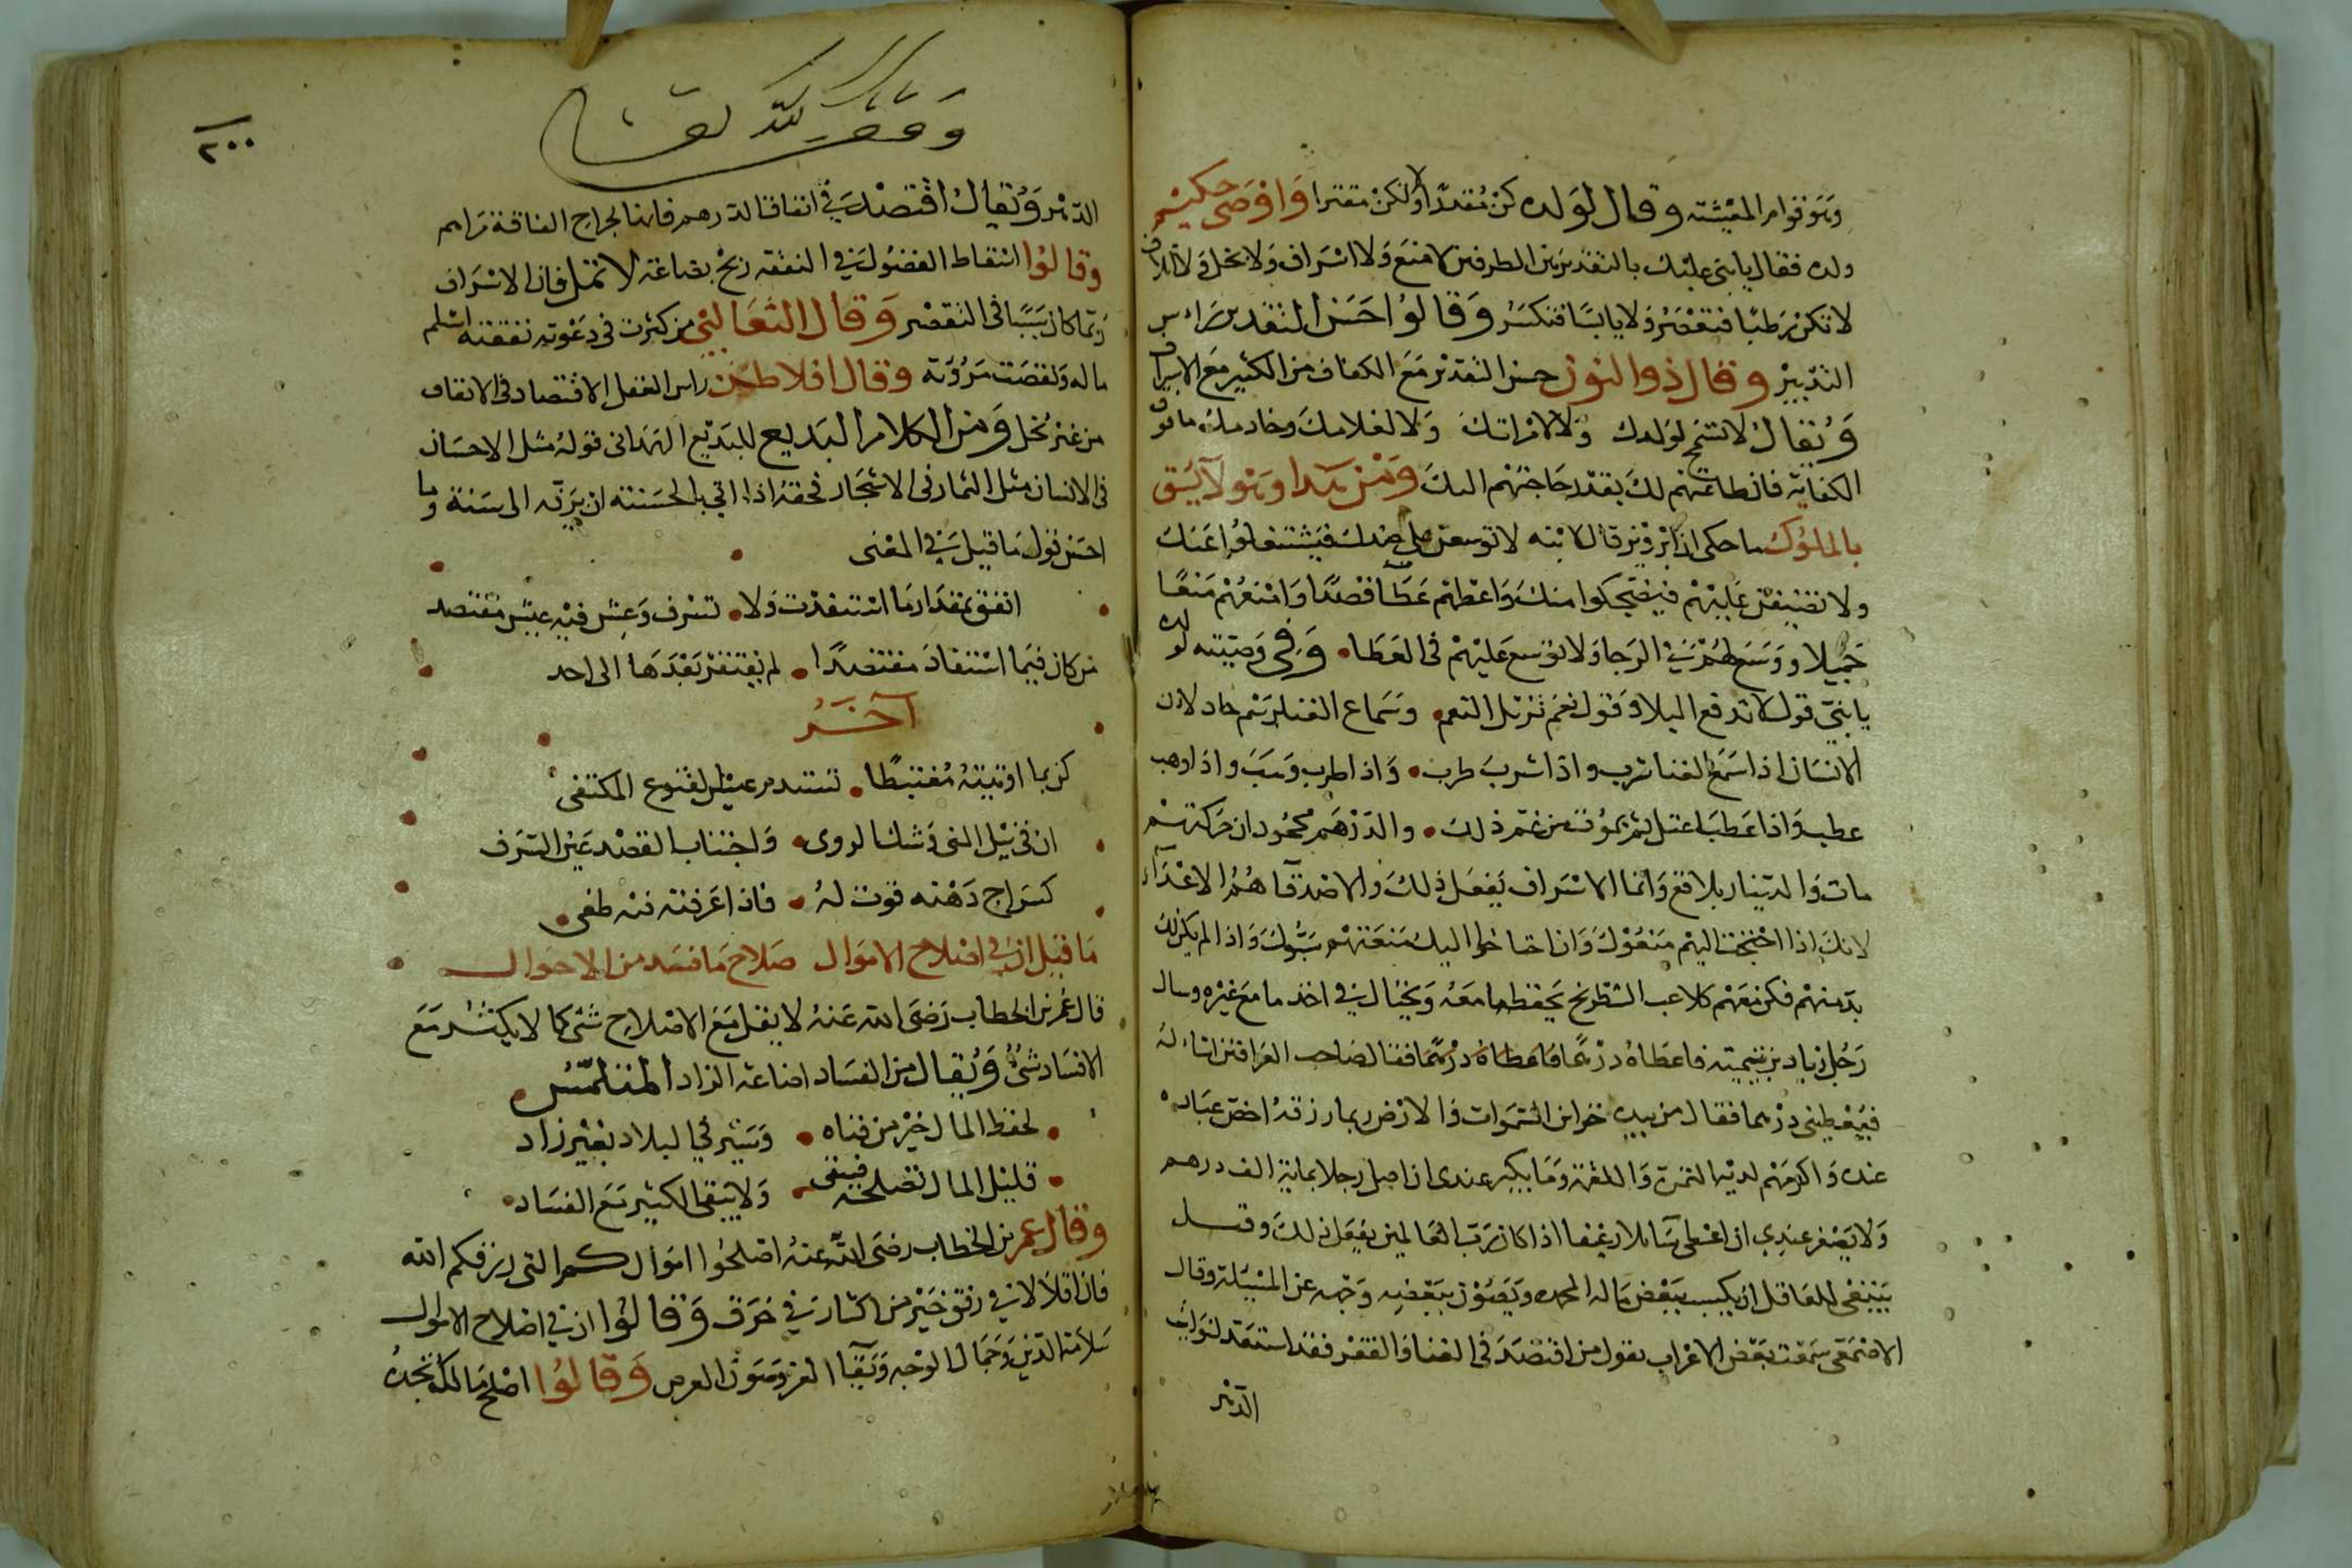 وهو قوام المعيشة وقال لولده كن مقدرا ولا تكن مقترا واوصى حكيم
ولده فقال يا بنى عليك بالتقدير بين الطرفين لا منع ولا اسراف ولا بخل ولا اتلاف
لا تكن رطبا فتعصر ولا يابسا فتكسر وقالوا حسن التقدير راس
التدبير وقال ذوا النون حسن التقدير مع الكفاف من الكثير مع الاسراف
ويقال لا تسمح لولدك ولا لامراتك ولا لغلامك وخادمك ما فوق
الكفاية فان طاعتهم لك بقدر حاجتهم اليك
بالملوك ما حكى ان ابرويز قال لابنه لا توسعن على جندك فيشتغلوا عنك
ولا تضيقن عليهم فيضجوا منك واعطهم عطا قصدا وامنعهم منعا
جميلا ووسع لهم في الرجا ولا توسع عليهم في العطا وفي وصيته لولده
يا بنى قول لا تدفع البلا وقول نعم تزيل النعم وسماع الغنا برسم حاد لان
الانسان اذا سمع الغنا شرب واذا شرب طرب واذا طرب وهب واذا وهب
عطب واذا عطب اعتل ثم يموت من غم ذلك والدرهم محموم ان حركته
مات والدينار بلاقع وانما الاسراف يفعل ذلك والاصدقا هم الاعداء
لانك اذا احتجت اليهم منعوك وان احتاجوا اليك منعتهم سبوك واذا لم يكن لك
بد منهم فكن معهم كلاعب الشطرنج يحفظ ما معه ويحتال في اخذ ما مع غيره وسال
رجل زياد فاعطاه درهما فاعطاه درهما فقال صاحب العراقين اساله
فيعطينى درهما فقال من بيده خزاين السموات والارض ربما رزق اخص عباده
عنده واكرمهم لديه التمرة واللقمة وما يكبر عندى ان اصل رجلا بماية الف درهم
ولا يصغر عندي ان اعطى سايلا رغيفا اذا كان رب العالمين يفعل ذلك وقيل
ينبغى للعاقل ان يكسب ببعض ماله المحمدة ويصون ببعضه وجهه عن المسيلة وقال
الاصمعى سمعت بعض الاعراب يقول من اقتصد فى الغنا والفقر فقد استعد لنوايب
الدهر
٢٠٠
وقف لله تعالى
الدهر ويقال اقتصد في انفاق الدرهم فانها لجراح الفاقة مراهم
وقالوا التقاط الفضول في النفقة ربح بضاعة لا تمل فان الاسراف
ربما كان سببا فى التقصير وقال الثعالبي من كثرت فى دعوته نفقته اسلم
ماله ونقصت مروته وقال افلاطون راس العقل الاقتصاد فى الانفاق
من غير بخل ومن الكلام البديع للبديع الهمدانى قوله مثل الاحسان
فى الانسان مثل الثمار فى الاشجار فحقه اذا اتي بالحسنة ان يرفه الى سنة وما
احسن قول ما قيل في المعنى
انفق بمقدار ما استفدت ولا تسرف وعش فيه عيش مقتصد
من كان فيما استفاد مقتصدا لم يفتقر بعدها الى احد
آخر
كن بما اوتيته مغتبطا تستدم عيش القنوع المكتفى
ان فى نيل المنى وشك الردى واجتناب القصد عين السرف
كسراج دهنه قوت له فاذا غرقته فيه طفى
ما قيل ان في اصلاح الاموال صلاح ما فسد من الاحوال
قال عمر بن الخطاب رضى الله عنه لا يقل مع الاصلاح شى كما لا يكثر مع
الافساد شئ ويقال من الفساد اضاعة الزاد المتلمس
لحفظ المال خير من فناه وسير في البلاد بغير زاد
قليل المال تصلحه فيبقى ولا يبقى الكثير مع الفساد
وقال عمر بن الخطاب رضى الله عنه اصلحوا اموالكم التى رزقكم الله
فان اقلالا في رفق خير من اكثار في خرق وقالوا ان في اصلاح الاموال
سلامة الدين وجمال الوجه وبقا العز وصون العرض وقالوا اصلح مالك تجده